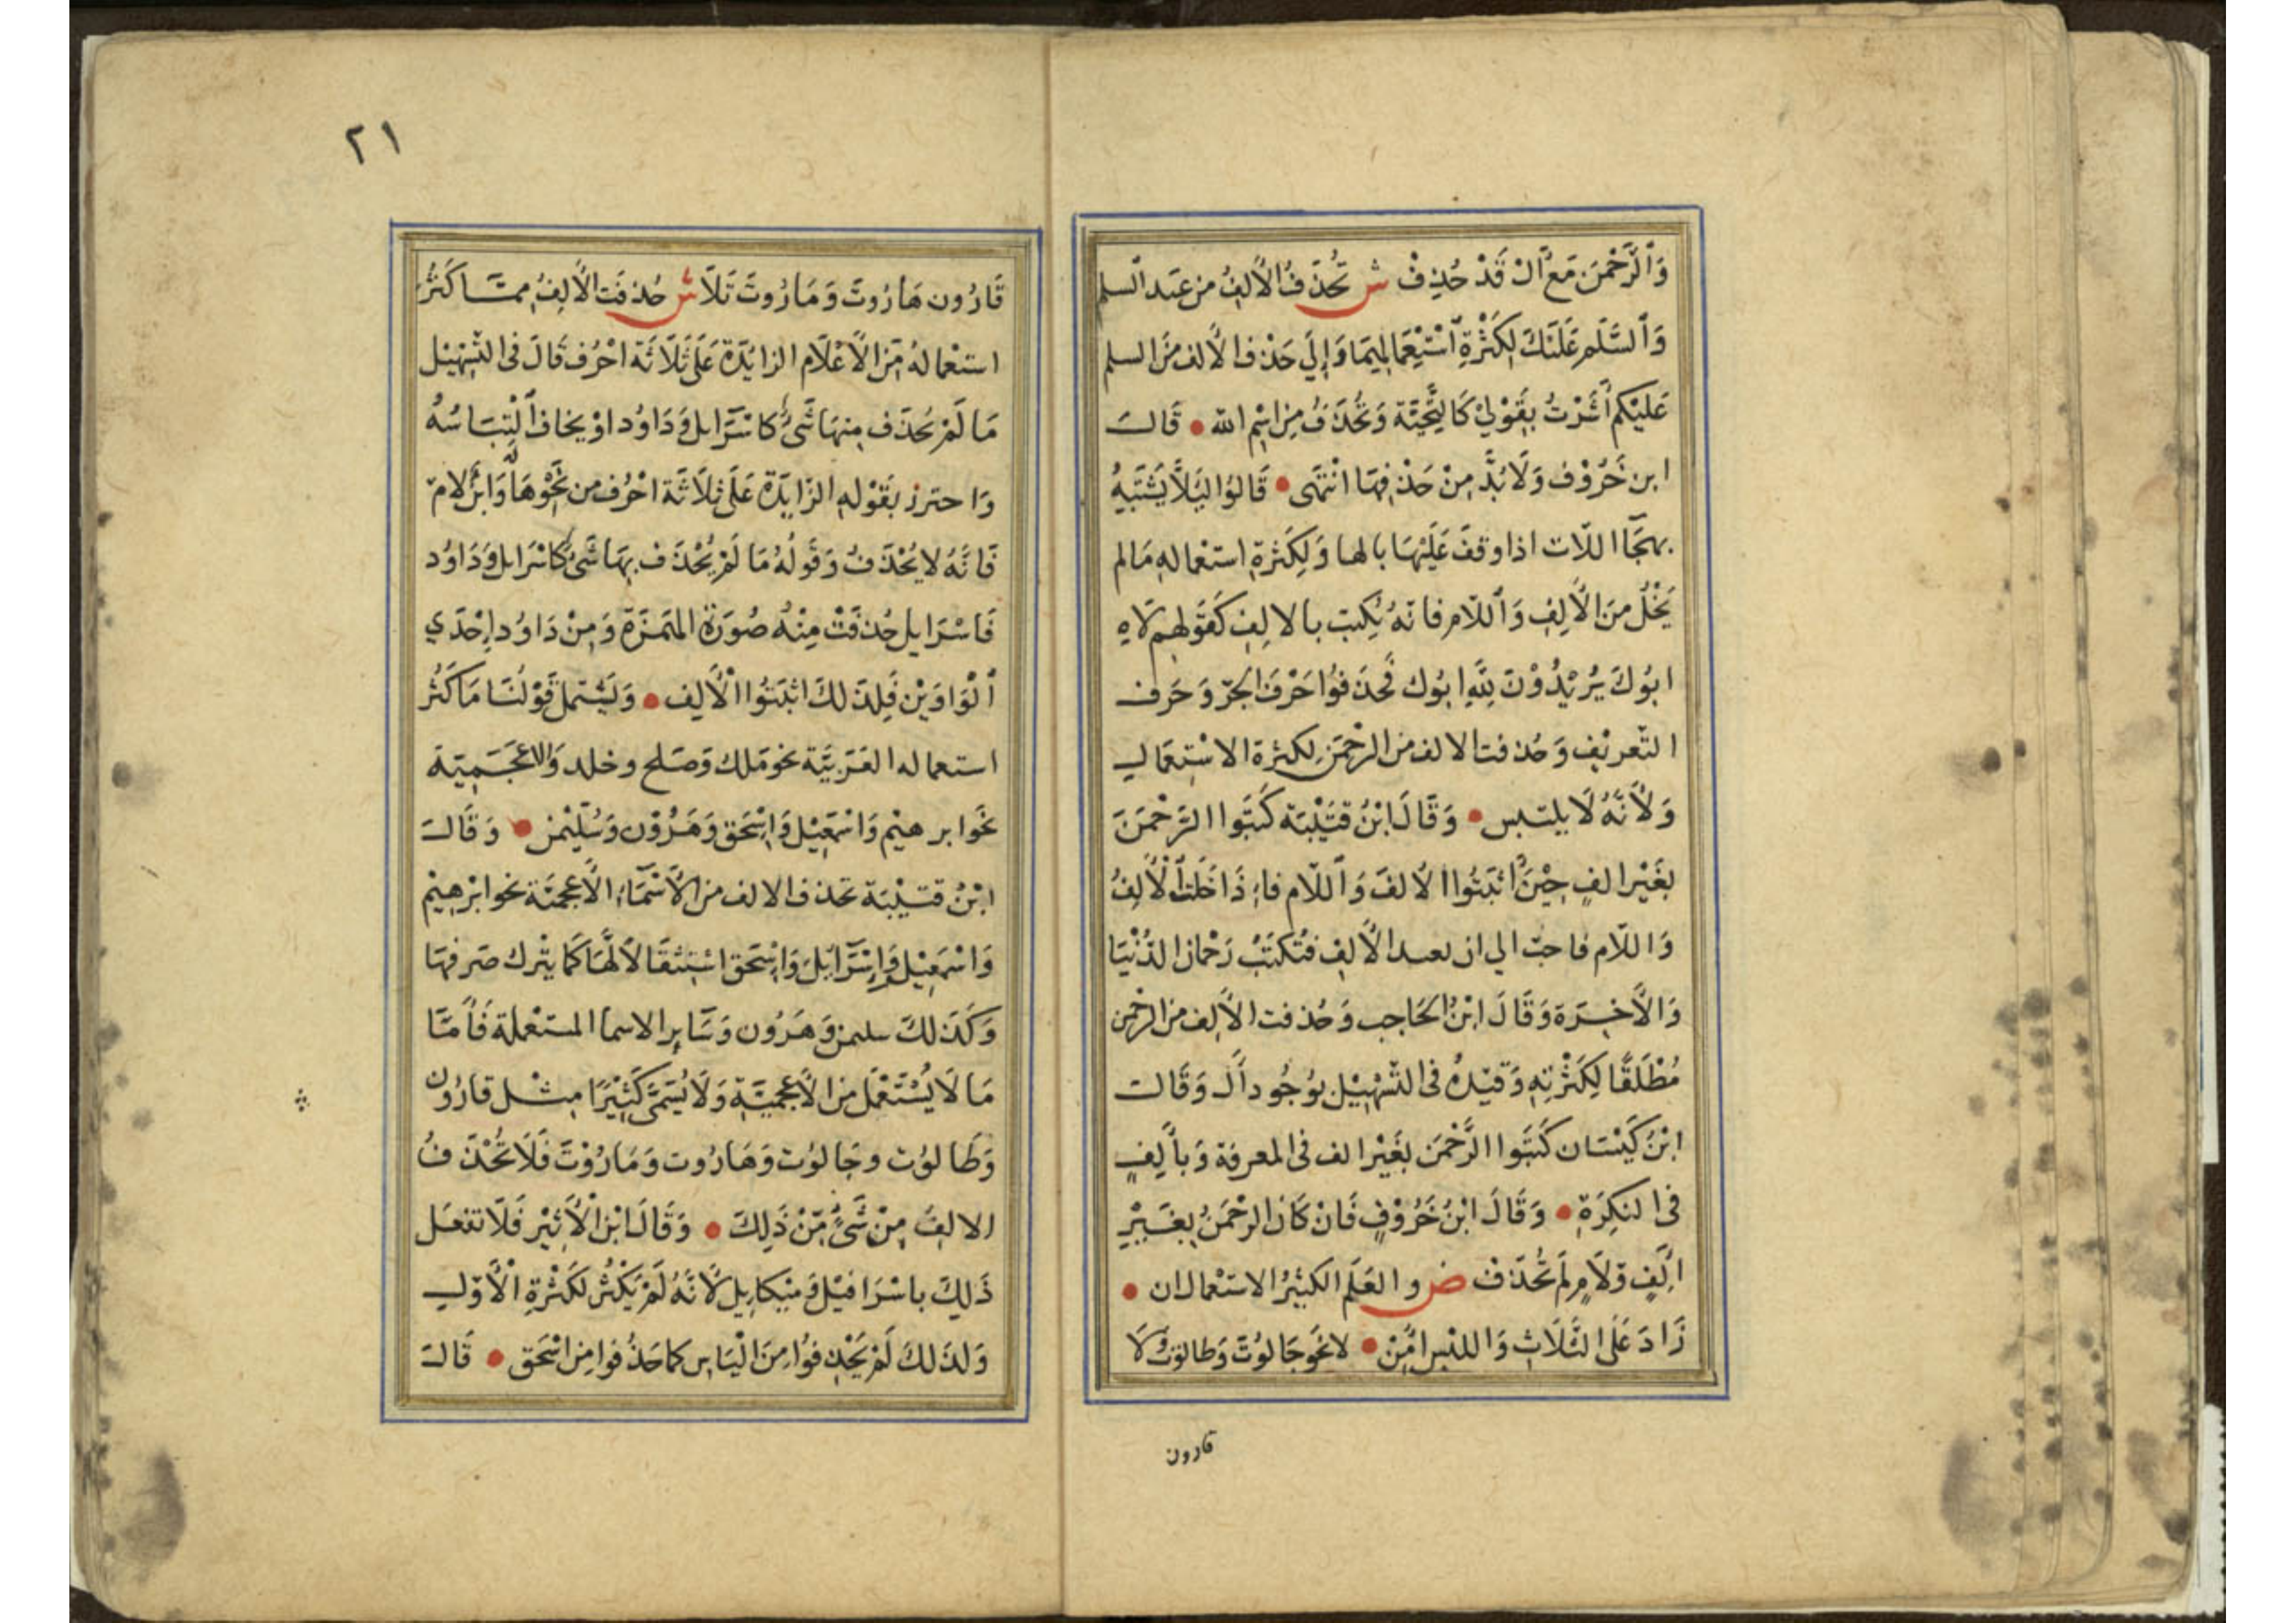 وَٱلرَّحْمٰنَ مَعْ اَلْ قَدْ حُذِفْ ش تُحْذَفُ الْأَلِفُ من عَبد السلم
وَٱلسَّلٰم عَلَيْكَ لِكَثْرَةِ ٱسْتِعْمَالِهِمَا وَإِلَي حَذْف الألف مِنَ السلم
عَلَيْكم أَشَرْتُ بِقَوْلِيْ كَالتَّحِيَّة وَتُحْذَفُ مِن اسْمِ الله • قَالَ
ابن خَرُوْف وَلَا بُدَّ مِنْ حَذْفِهَا انْتَهَى • قَالُوا لِئَلَّا يَشْتَبِهُ
بهجَآ اللّات اذا وقفَ عَلَيْهَا بالها وَلِكَثرةِ استعمالهِ مَا لم
يَخْلُ مِنَ الْأَلِفِ وَٱللّام فانهُ يُكتب بالالِفِ كَقَولِهِم لَاهِ
ابُوكَ يُرِيْدُوْنَ لِلّٰهِ ابُوك فَحَذفُوا حَرْفَ الجَرّ وَحَرف
التّعريْفِ وَحُذفت الالف من الرحْمَن لِكثرة الاسْتِعمَالِ
وَلأَنَّهُ لَا يلتبس • وَقَالَ ابْنُ قتَيْبَة كَتَبُوا الرَّحْمَنَ
بغَيْر الفٍ حِيْنَ أَثبَتُوا الألفَ وَٱللّام فاِذَا خَلَت ٱلْأَلِفُ
وَاللّام فاحبّ الي ان تعيد الْأَلِفَ فتُكتَبُ رَحْمان الدُّنْيَا
وَالأخِرَة وَقَالَ ابْنُ الحَاجِب وَحُذفت الْأَلِف من الرحْمن
مُطْلَقًا لِكَثْرَتِهِ وَقيّدهُ فى التّسْهِيْل بوُجُود أَلْ وَقَالَ
ابْنُ كَيْسَان كَتَبُوا الرَّحْمَنَ بغَيْر الف فى المعرفة وَبأَلِفٍ
فى النكِرَةِ • وَقَالَ ابْنُ خَرُوْفٍ فَانْ كَان الرحْمَنُ بِغَيْرِ
الِفٍ وَلَامٍ لَم تُحْذَفْ ض والعَلَم الكثيْرُ الاستعمال ان •
زَادَ عَلَى الثَّلَاثِ وَاللبس امِنْ • لا نحَو جَالُوتَ وَطالوتَ وَلَا
قارون
٢١
قَارُون هَارُوتَ وَمَارُوتَ تَلَا ش حُذفَت الْأَلِفُ ممّا كَثُرَ
استعمالهُ مِن الْأَعْلَام الزايدَة عَلَى ثَلَاثَة احْرُف قَالَ فى التّسْهِيْل
مَا لَمْ يُحْذَف مِنهَا شَئٌ كاسْرَايل وَدَاوُد اوْ يخاف ٱلْتِبَاسُهُ
وَاحترز بقَوْلهِ الزَايدَة عَلَى ثلاثَة احْرُف من نَحْو هَالَة وَابن لام
فَانَّهُ لا يُحْذَفُ وَقَولُهُ مَا لَمْ يُحْذَف بِهَا شَئٌ كاسْرَايل وَدَاوُد
فَاسْرَايل حُذفَتْ مِنْهُ صُورَةُ الهَمزَة وَمِنْ دَاوُد إحْدَي
ٱلْوَاوَيْن فَلِذلكَ اثْبَتُوا الْأَلِف • وَيَشْمل قَوْلُنَا مَا كَثُرَ
استعماله العَرَبيَّة نحَو مَلك وَصَلح وخلد وَالاعْجَمِيّة
نحَو ابرهيْم وَاسْمعيْل وَاِسْحَق وَهَرُوْن وَسُلَيْمن • وَقَالَ
ابْنُ قتيْبَة تحذف الالف من الأسْمَآءِ الأعجميّة نحو ابْرهيْم
وَاسْمعِيْل وَاِسْرَآئلَ وَاِسْحَق اسْتِثقَالاً لَهَا كَمَا يتْرك صَرفهَا
وَكَذَلكَ سليمن وَهَرُون وَسَآيِر الاسما المستَعْملة فَأَمَّا
مَا لَا يُسْتَعْمَل مِن الْأَعْجَمِيَّةِ وَلَا يُسَمَّى كَثِيْرًا مِثْل قارُون
وَطَالوُت وجَالُوت وَهَارُوت وَمَارُوْتَ فَلَا تُحْذَفُ
الالِفُ مِنْ شَيءٍ مِنْ ذَلِكَ • وَقَالَ ابْن الْأَثِيْر فَلَا تفعَل
ذَلِكَ باسْرَافيْل وَمِيْكايل لأَنّهُ لَمْ يَكْثُر لكَثْرَةِ الْأَوّلِ
وَلذَلكَ لَمْ يَحْذِفوُا مِنَ الْيَاسِ كما حَذفُوا مِن اسْحَق • قَالَ